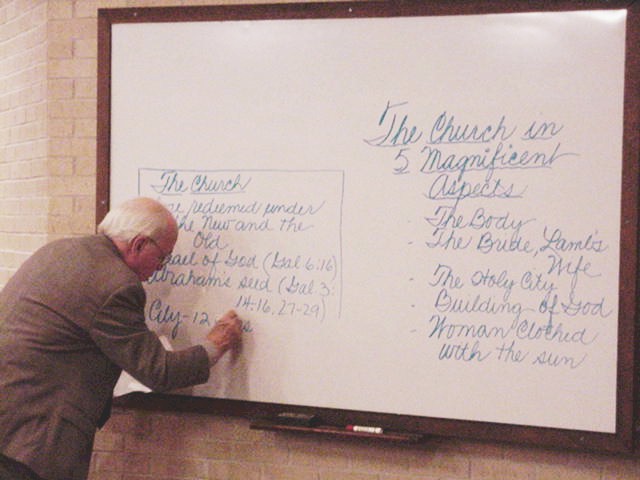 The Church
redeemed under
the New and the
Old
of God (Gal 6:16)
Abraham's seed (Gal 3:
14-16, 27-29)
City-12
The Church in
5 Magnificent
Aspects
- The Body
- The Bride, Lamb's
Wife
- The Holy City
- Building of God
- Woman Clothed
with the sun